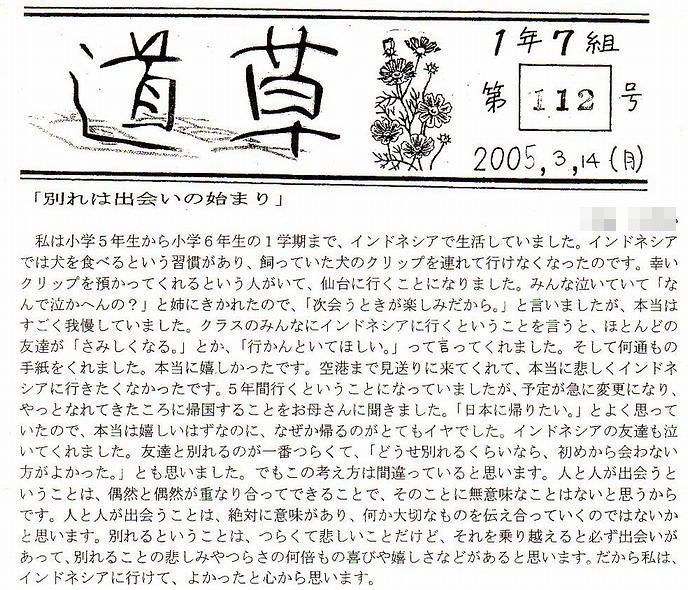 道草
1年7組
第 112 号
2005,3,14(月)
「別れは出会いの始まり」
私は小学5年生から小学6年生の1学期まで、インドネシアで生活していました。インドネシア
では犬を食べるという習慣があり、飼っていた犬のクリップを連れて行けなくなったのです。幸い
クリップを預かってくれるという人がいて、仙台に行くことになりました。みんな泣いていて「な
んで泣かへんの?」と姉にきかれたので、「次会うときが楽しみだから。」と言いましたが、本当は
すごく我慢していました。クラスのみんなにインドネシアに行くということを言うと、ほとんどの
友達が「さみしくなる。」とか、「行かんといてほしい。」って言ってくれました。そして何通もの
手紙をくれました。本当に嬉しかったです。空港まで見送りに来てくれて、本当に悲しくインドネ
シアに行きたくなかったです。5年間行くということになっていましたが、予定が急に変更になり、
やっとなれてきたころに帰国することをお母さんに聞きました。「日本に帰りたい。」とよく思って
いたので、本当は嬉しいはずなのに、なぜか帰るのがとてもイヤでした。インドネシアの友達も泣
いてくれました。友達と別れるのが一番つらくて、「どうせ別れるくらいなら、初めから会わない
方がよかった。」とも思いました。でもこの考え方は間違っていると思います。人と人が出会うと
いうことは、偶然と偶然が重なり合ってできることで、そのことに無意味なことはないと思うから
です。人と人が出会うことは、絶対に意味があり、何か大切なものを伝え合っていくのではないか
と思います。別れるということは、つらくて悲しいことだけど、それを乗り越えると必ず出会いが
あって、別れることの悲しみやつらさの何倍もの喜びや嬉しさなどがあると思います。だから私は、
インドネシアに行けて、よかったと心から思います。